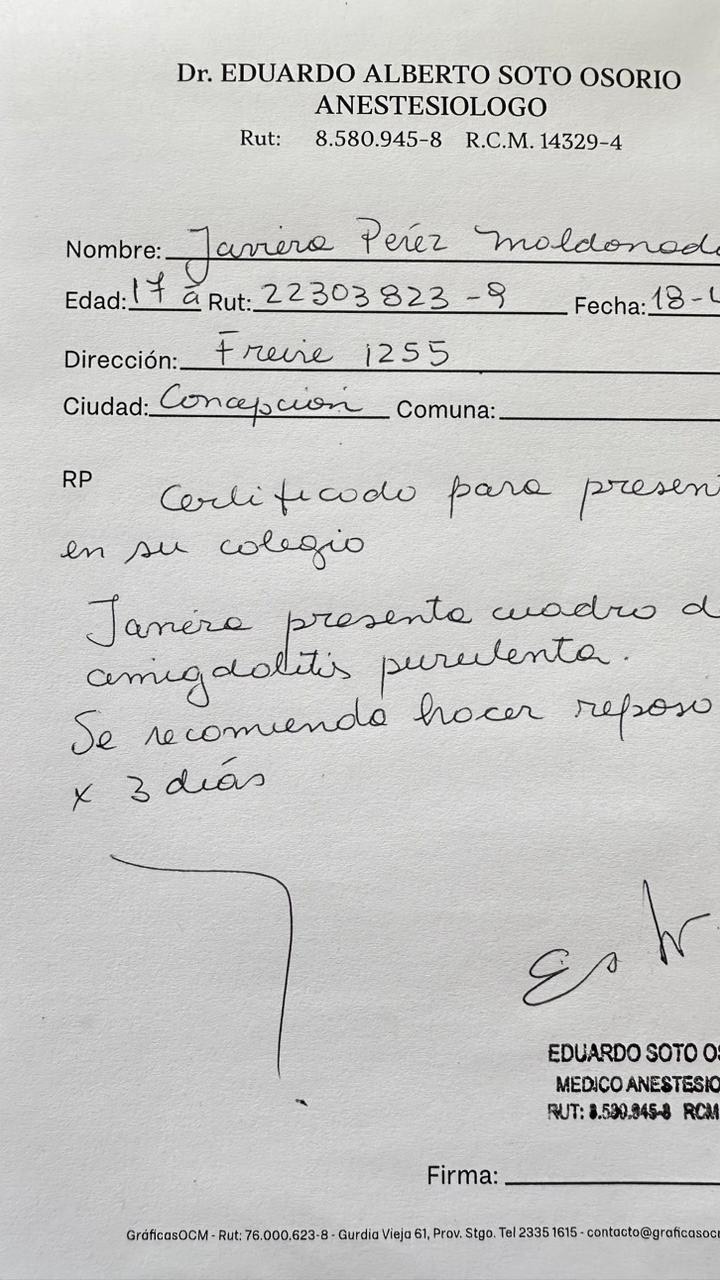 Dr. EDUARDO ALBERTO SOTO OSORIO
ANESTESIOLOGO
Rut: 8.580.945-8 R.C.M. 14329-4
Nombre: Javiera Peréz Moldonado
Edad: 17 a Rut: 22303823-9 Fecha: 18-
Dirección: Freire 1255
Ciudad: Concepción Comuna:
RP Certificado para present
en su colegio
Javiera presenta cuadro d
amigdolitis purulenta.
Se recomienda hacer reposo
x 3 diás
EDUARDO SOTO OS
MEDICO ANESTESIO
RUT: 8.580.945-8 RCM
Firma:
GráficasOCM - Rut: 76.000.623-8 - Gurdia Vieja 61, Prov. Stgo. Tel 2335 1615 - contacto@graficasocm